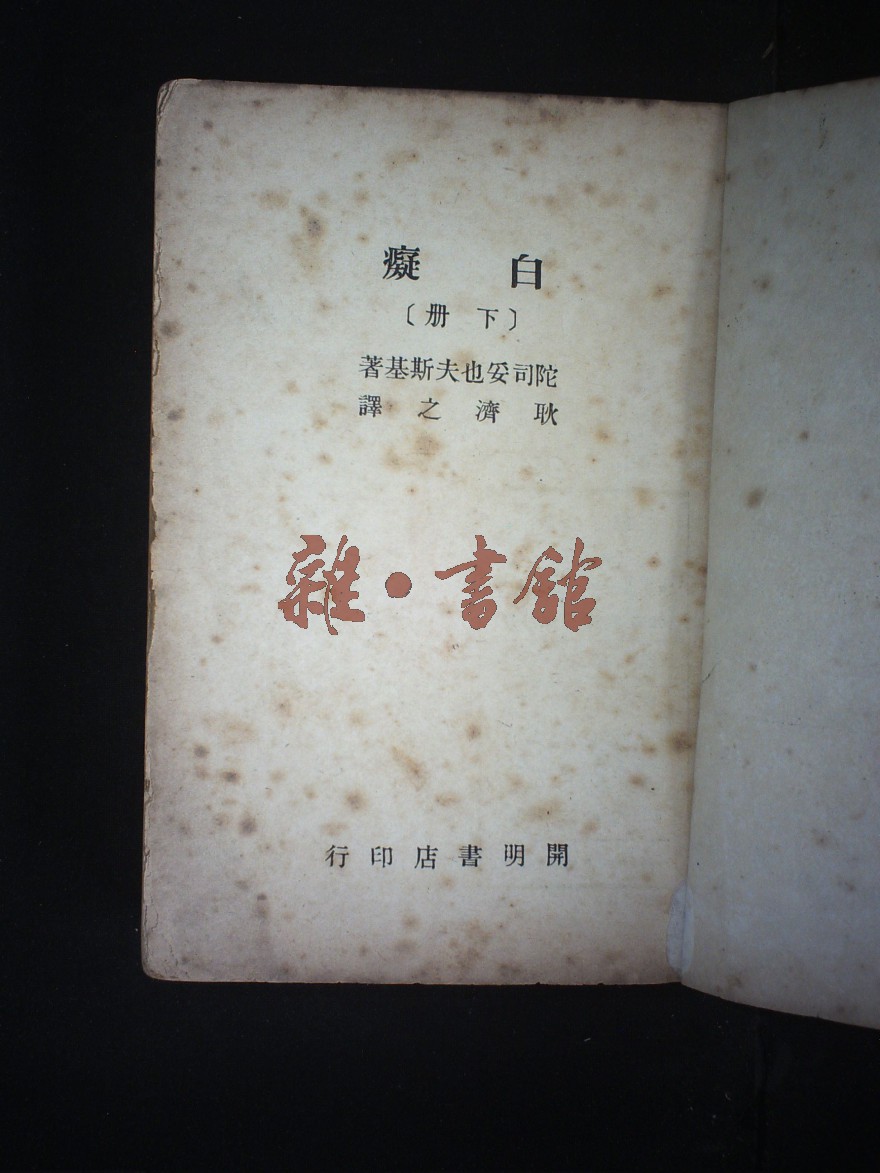 白癡
〔下册〕
陀司妥也夫斯基著
耿濟之譯
雜·書館
開明書店印行